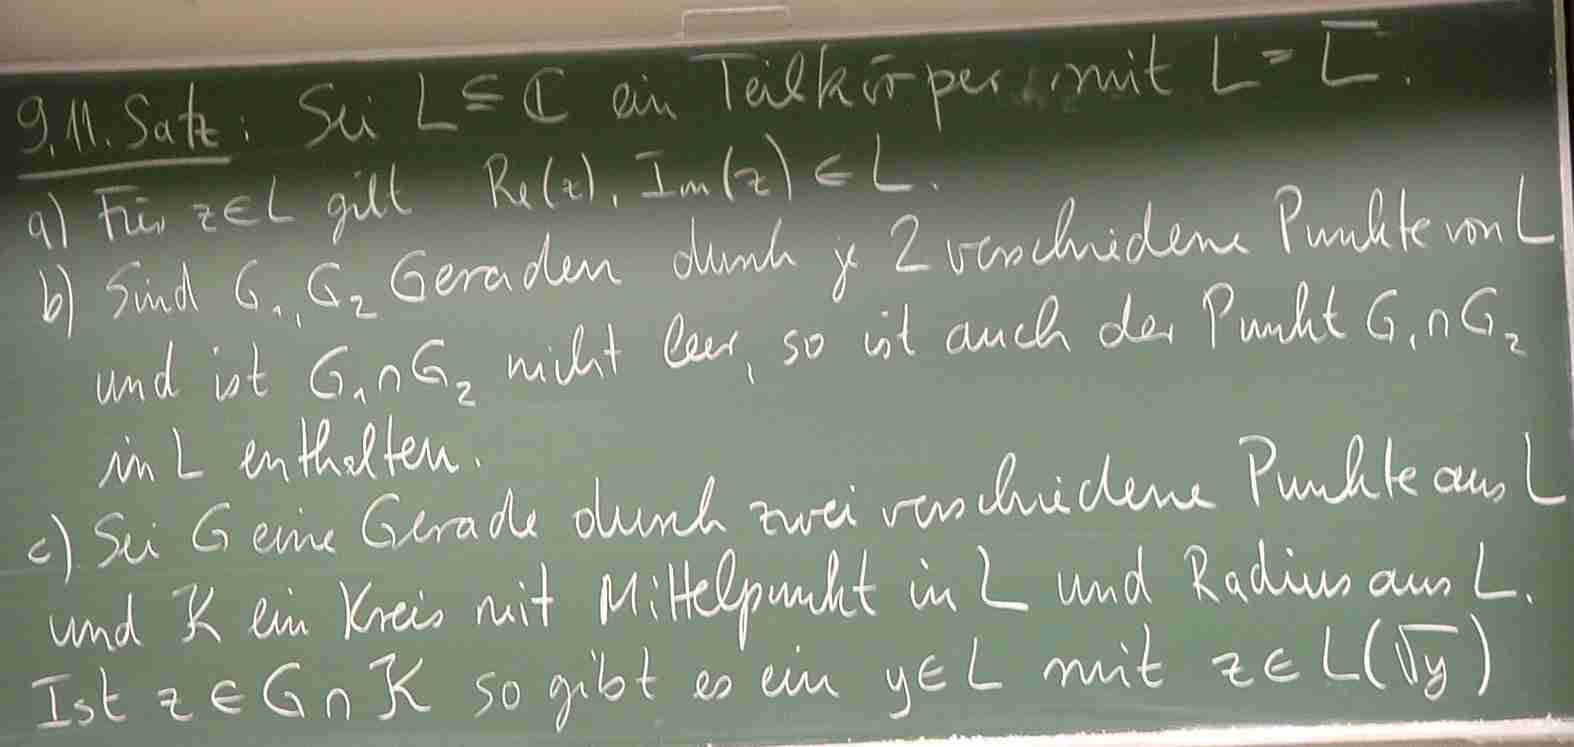 9.11. Satz: Sei L ⊆ ℂ ein Teilkörper mit L = L̅.
a) Für z∈L gilt Re(z), Im(z) ∈ L.
b) Sind G₁, G₂ Geraden durch je 2 verschiedene Punkte von L
und ist G₁∩G₂ nicht leer, so ist auch der Punkt G₁∩G₂
in L enthalten.
c) Sei G eine Gerade durch zwei verschiedene Punkte aus L
und K ein Kreis mit Mittelpunkt in L und Radius aus L.
Ist z∈G∩K so gibt es ein y∈L mit z∈L(√y)